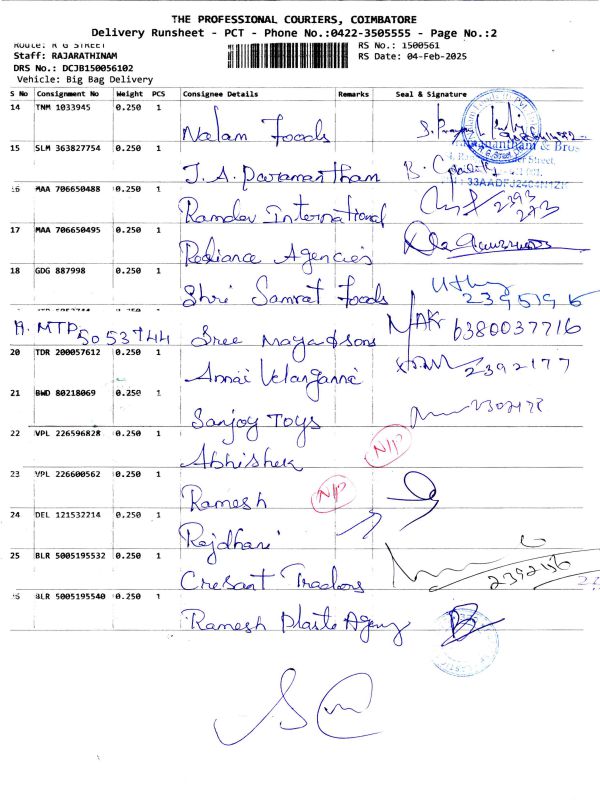 THE PROFESSIONAL COURIERS, COIMBATORE
Delivery Runsheet - PCT - Phone No.:0422-3505555 - Page No.:2
Route: R G STREET
RS No.: 1500561
Staff: RAJARATHINAM
RS Date: 04-Feb-2025
DRS No.: DCJB150056102
Vehicle: Big Bag Delivery
S No Consignment No Weight PCS Consignee Details Remarks Seal & Signature
14 TNM 1033945 0.250 1
Nalam Foods
15 SLM 363827754 0.250 1
J.A. Paramantham
16 MAA 706650488 0.250 1
Ramdev International 2393
273
17 MAA 706650495 0.250 1
Radiance Agencies
18 GDG 887998 0.250 1
Shri Samrat Foods 2395195
A. MTP 5053744 Sree Maya & Sons 6380037716
20 TDR 200057612 0.250 1
Annai Velanganni 2392177
21 BWD 80218069 0.250 1
Sanjoy Toys
22 VPL 226596828 0.250 1
Abhishek N/P
23 VPL 226600562 0.250 1
Ramesh N/P
24 DEL 121532214 0.250 1
Rajdhani
25 BLR 5005195532 0.250 1
Cresant Traders 2392156
26 BLR 5005195540 0.250 1
Ramesh Plastic Agency